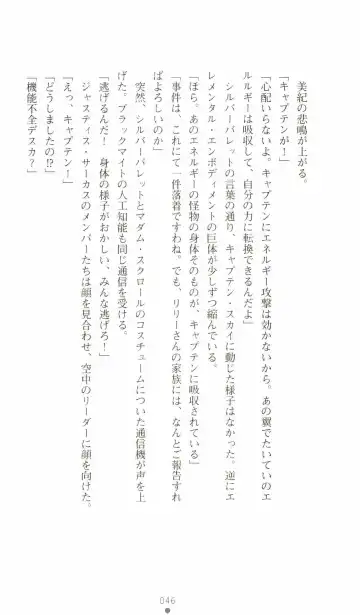 美紀の悲鳴が上がる。
「キャプテンが！」
「心配いらないよ。キャプテンにエネルギー攻撃は効かないから。あの翼でたいていのエ
ルルギーは吸収して、自分の力に転換できるんだよ」
シルバーバレットの言葉の通り、キャプテン・スカイに動じた様子はなかった。逆にエ
レメンタル・エンボディメントの巨体が少しずつ縮んでいる。
「ほら。あのエネルギーの怪物の身体そのものが、キャプテンに吸収されてる」
「事件は、これにて一件落着ですわね。でも、リリーさんの家族には、なんとご報告すれ
ばよろしいのか」
突然、シルバーバレットとマダム・スクロールのコスチュームについた通信機が声を上
げた。ブラックマイトの人工知能も同じ通信を受ける。
「逃げるんだ！　身体の様子がおかしい、みんな逃げろ！」
ジャスティス・サーカスのメンバーたちは顔を見合わせ、空中のリーダーに顔を向けた。
「えっ、キャプテン！」
「どうしました⁉」
「機能不全デスカ？」
046